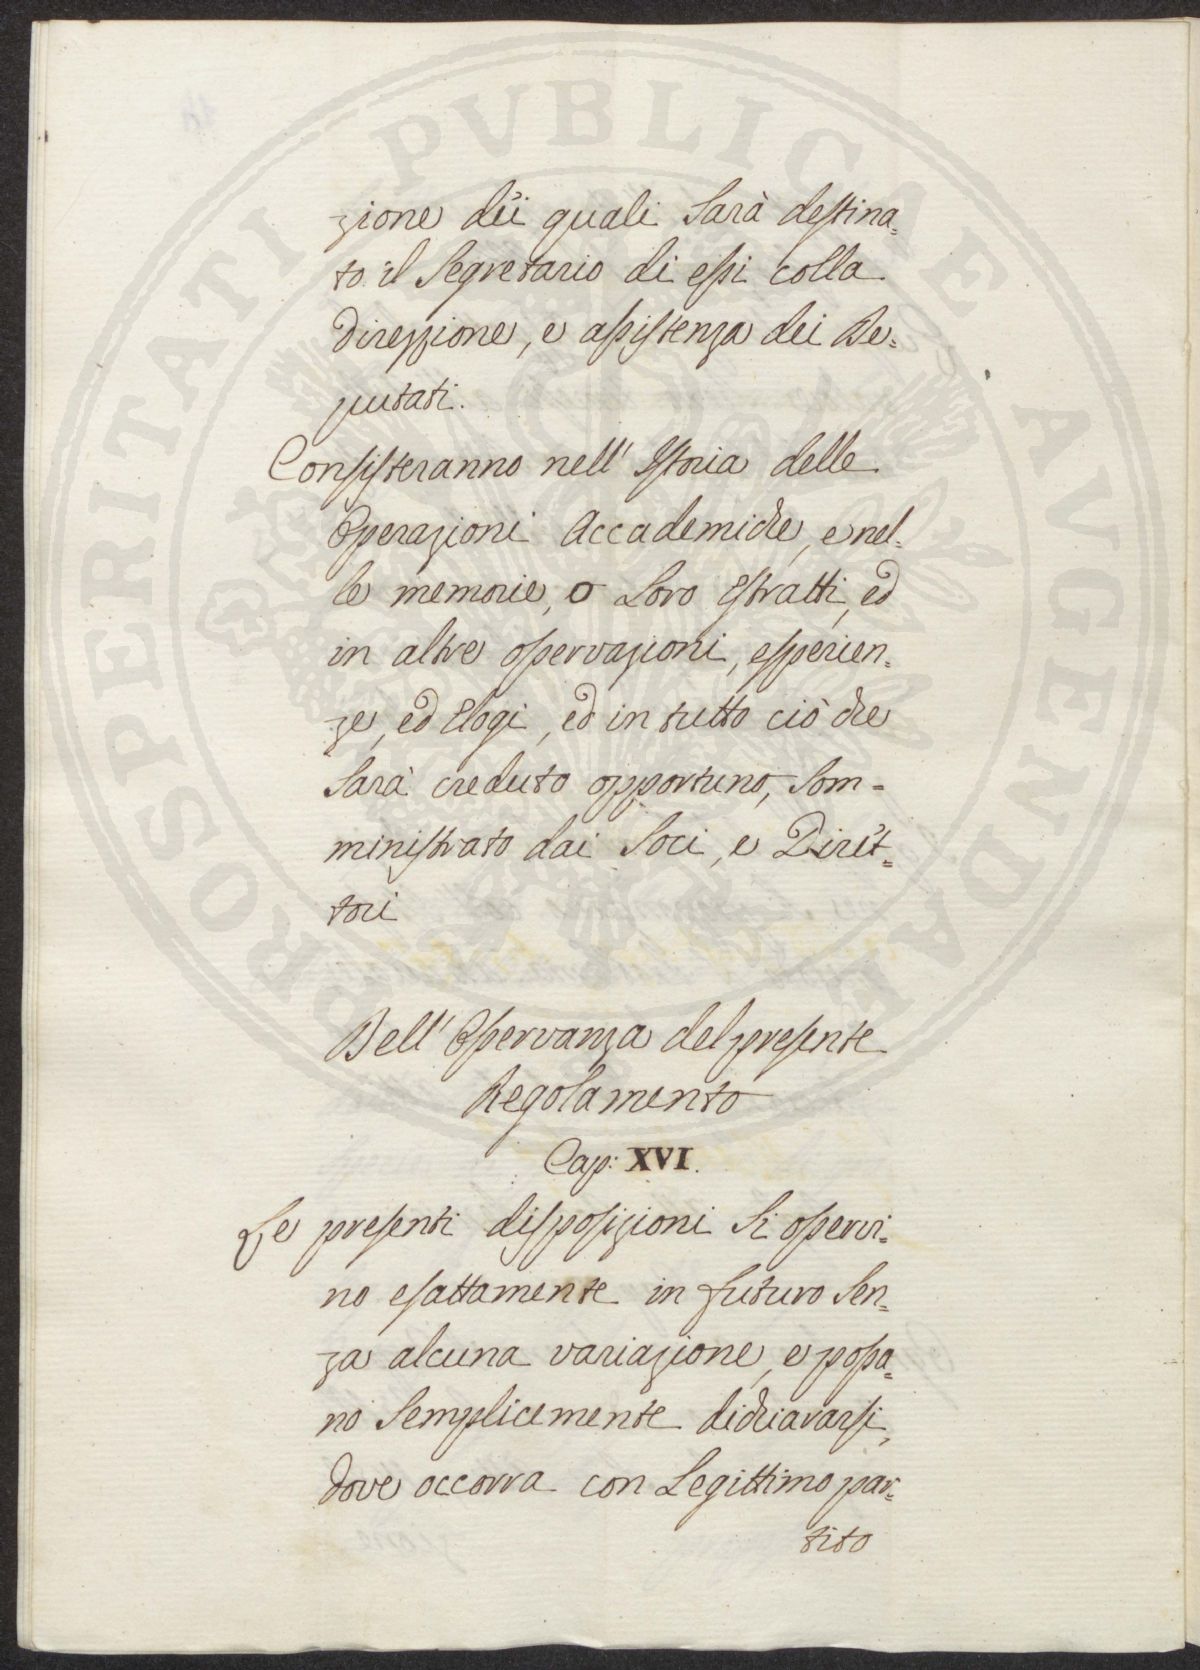 PROSPERITATI PVBLICAE AVGENDAE
zione dei quali Sarà destina=
to il Segretario di essi colla
Direzzione, e assistenza dei De=
putati.
Consisteranno nell' Istoria delle
Operazioni Accademiche, e nel=
le memorie, o Loro Estratti, ed
in altre osservazioni, esperien=
ze, ed Elogi, ed in tutto ciò che
Sarà creduto opportuno, Som=
ministrato dai Soci, e Diret=
tori
Dell' Osservanza del presente
Regolamento
Cap: XVI.
Le presenti disposizioni Si osservi=
no esattamente in futuro Sen=
za alcuna variazione, e possa=
no Semplicemente dichiararsi,
dove occorra con Legittimo par=
tito